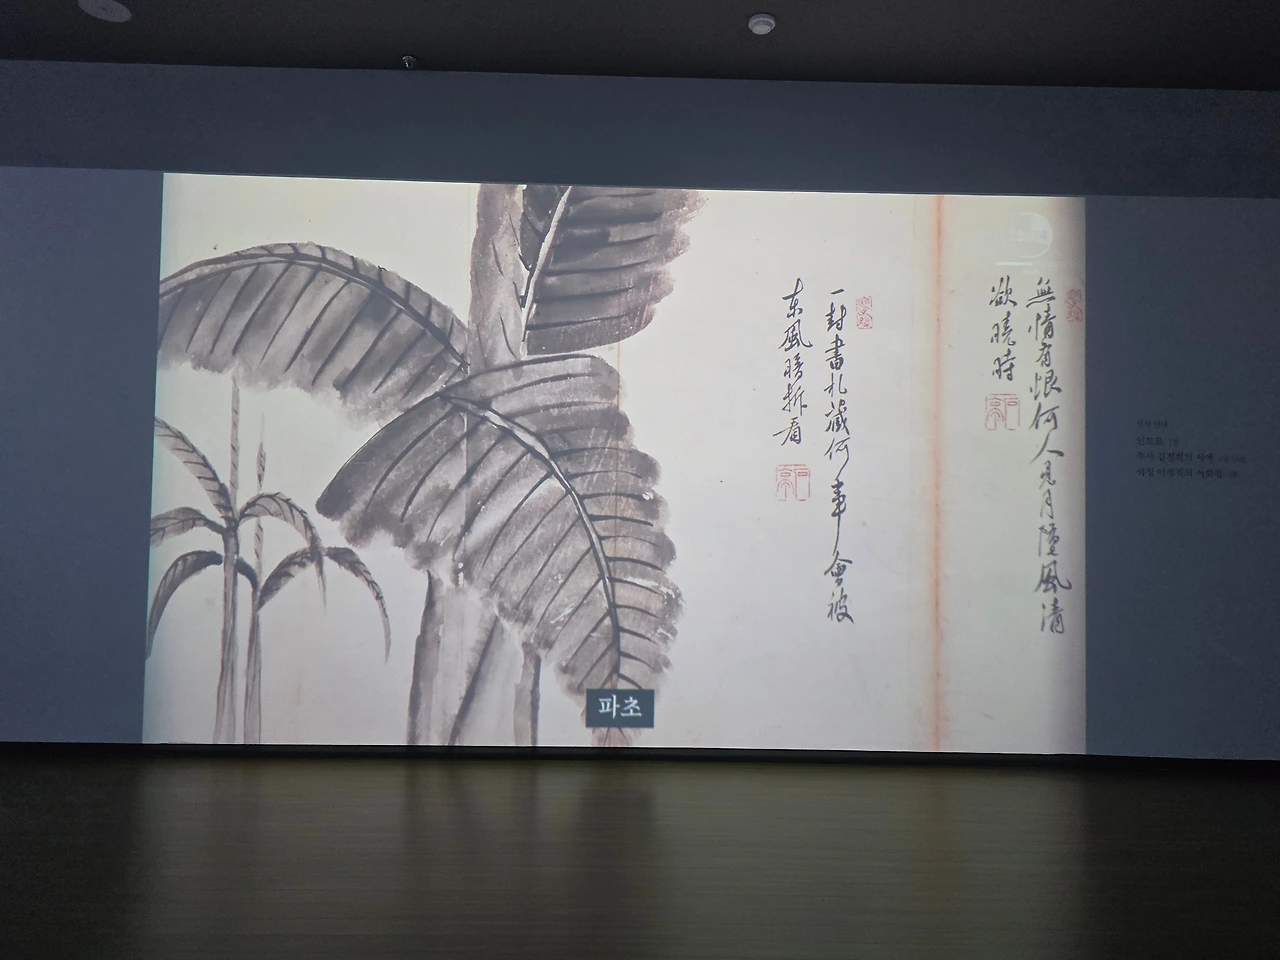 無情有恨何人見月墮風清
欲曉時
一封書札藏何事會被
東風暗拆看
파초
영상 안내
인트로
추사 김정희의 서예
석정 이정직의 서화첩